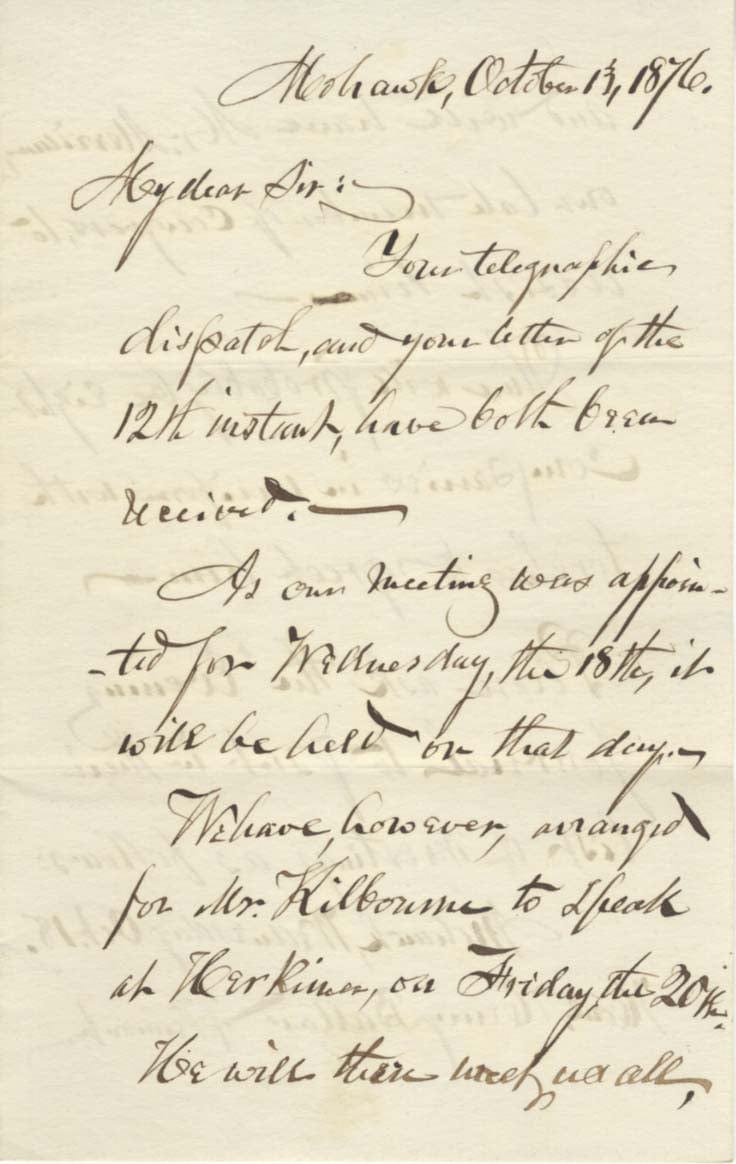 Mohawk, October 13, 1876.
My dear Sir:
Your telegraphic
dispatch, and your letter of the
12th instant, have both been
received.
As our meeting was appoin-
-ted for Wednesday, the 18th, it
will be held on that day.
We have, however, arranged
for Mr. Kilbourne to speak
at Herkimer, on Friday, the 20th.
He will there meet us all,